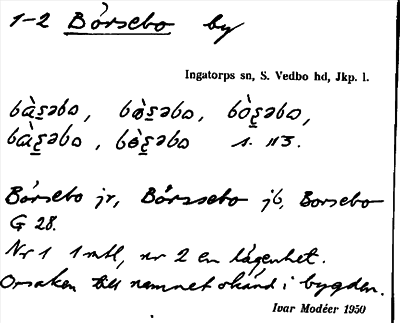 1-2 Bórsebo by
Ingatorps sn, S. Vedbo hd, Jkp. l.
bàs̱əbo, bɵ̀s̱əbo, bòs̱əbo,
bàs̱əbo, bɵ̀s̱əbo 1. 113.
Bórsebo jr, Bórssebo jb, Borsebo
G 28.
Nr 1 1 mtl, nr 2 en lägenhet.
Orsaken till namnet okänd i bygden.
Ivar Modéer 1950